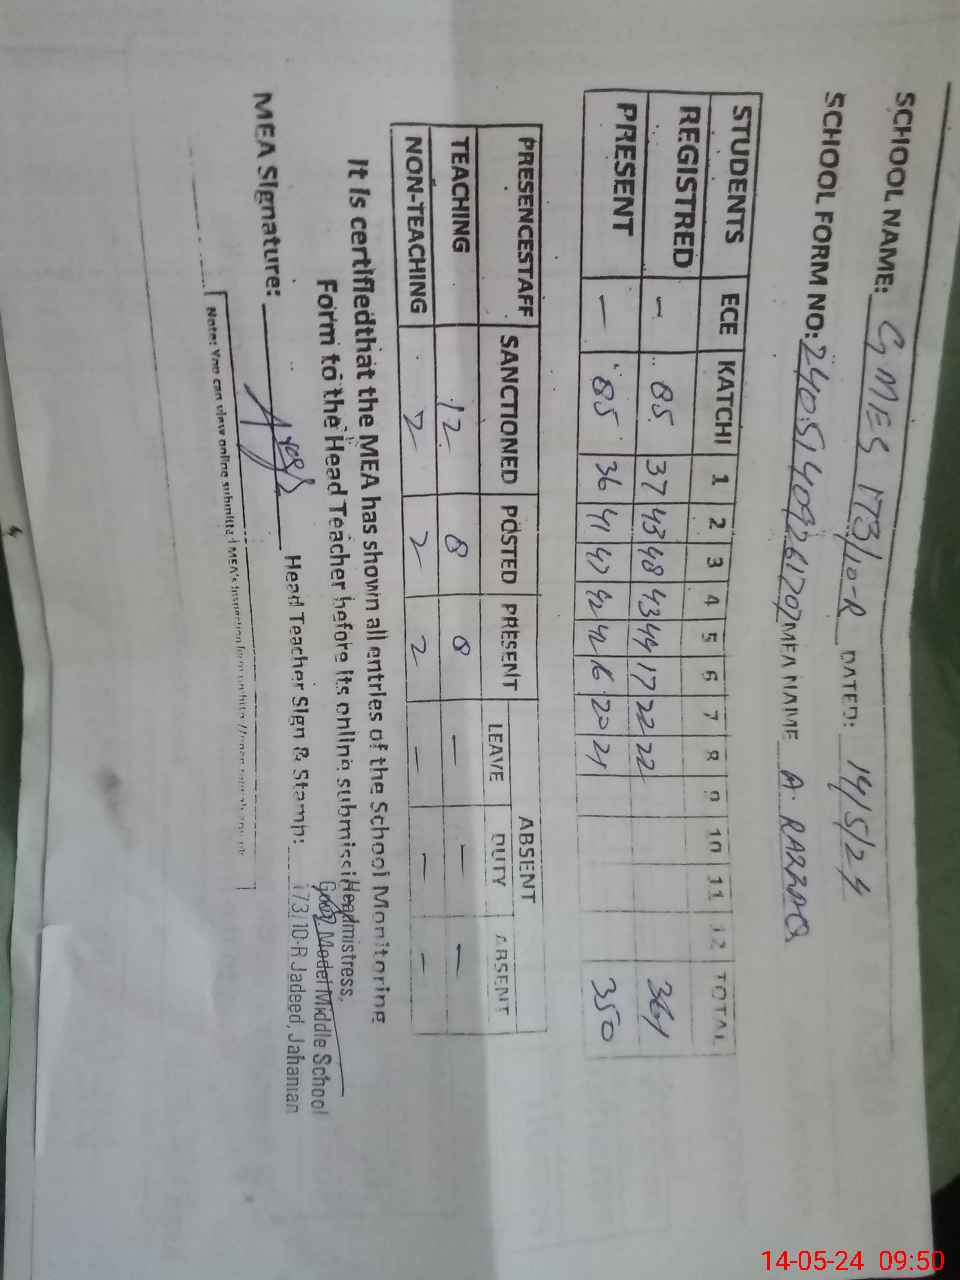 SCHOOL NAME: GMES 173/10-R DATED: 14/5/24
SCHOOL FORM NO: 240514092617207 MEA NAME A. RAZZAQ
STUDENTS ECE KATCHI 1 2 3 4 5 6 7 8 9 10 11 12 TOTAL
REGISTRED – 85 37 43 48 43 44 17 22 22 361
PRESENT – 85 36 41 47 42 42 16 20 21 350
PRESENCESTAFF SANCTIONED POSTED PRESENT ABSENT
LEAVE DUTY ABSENT
TEACHING 12 8 8 – – –
NON-TEACHING 2 2 2 – – –
It is certifiedthat the MEA has shown all entries of the School Monitoring
Form to the Head Teacher before its online submissi
Headmistress,
Model Middle School
173/10-R Jadeed, Jahanian
MEA Signature: Head Teacher Sign & Stamp:
Note: You can view online submitted MEA's Inspection form on
14-05-24 09:50